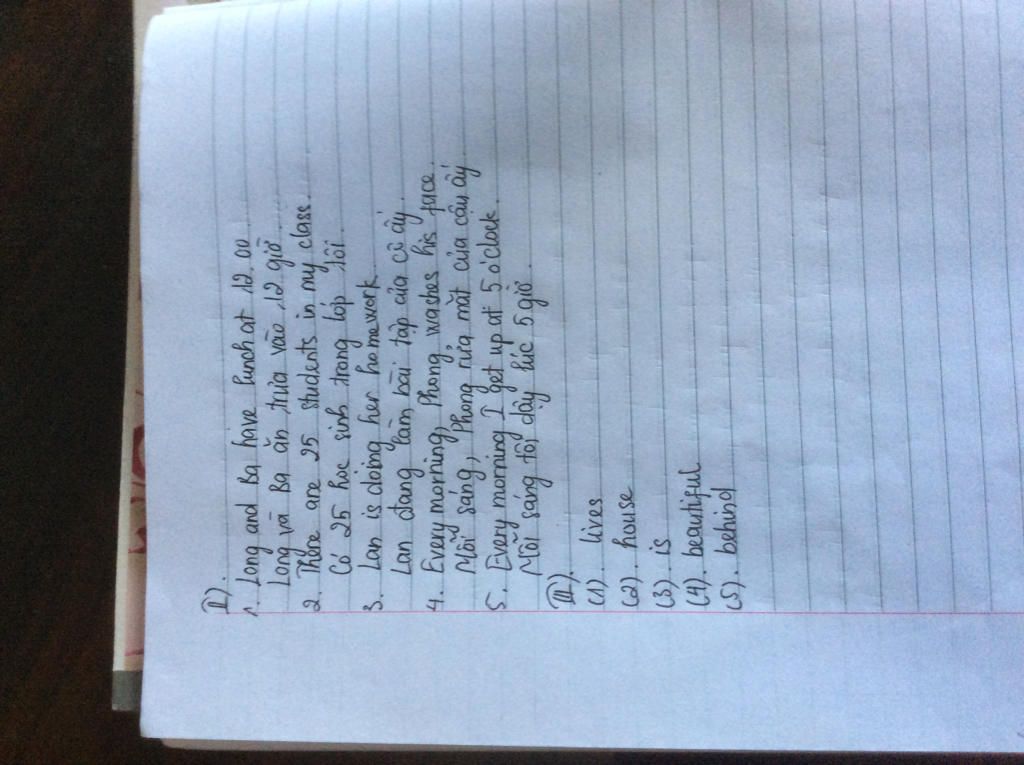 II).
1. Long and Ba have lunch at 12.00.
Long và Ba ăn trưa vào 12 giờ.
2. There are 25 students in my class.
Có 25 học sinh trong lớp tôi.
3. Lan is doing her homework.
Lan đang làm bài tập của cô ấy.
4. Every morning, Phong washes his face.
Mỗi sáng, Phong rửa mặt của cậu ấy
5. Every morning I get up at 5 o'clock.
Mỗi sáng tôi dậy lúc 5 giờ.
III).
(1). lives
(2). house
(3). is
(4). beautiful
(5). behind